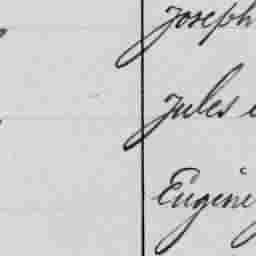 Joseph
Jules
Eugène